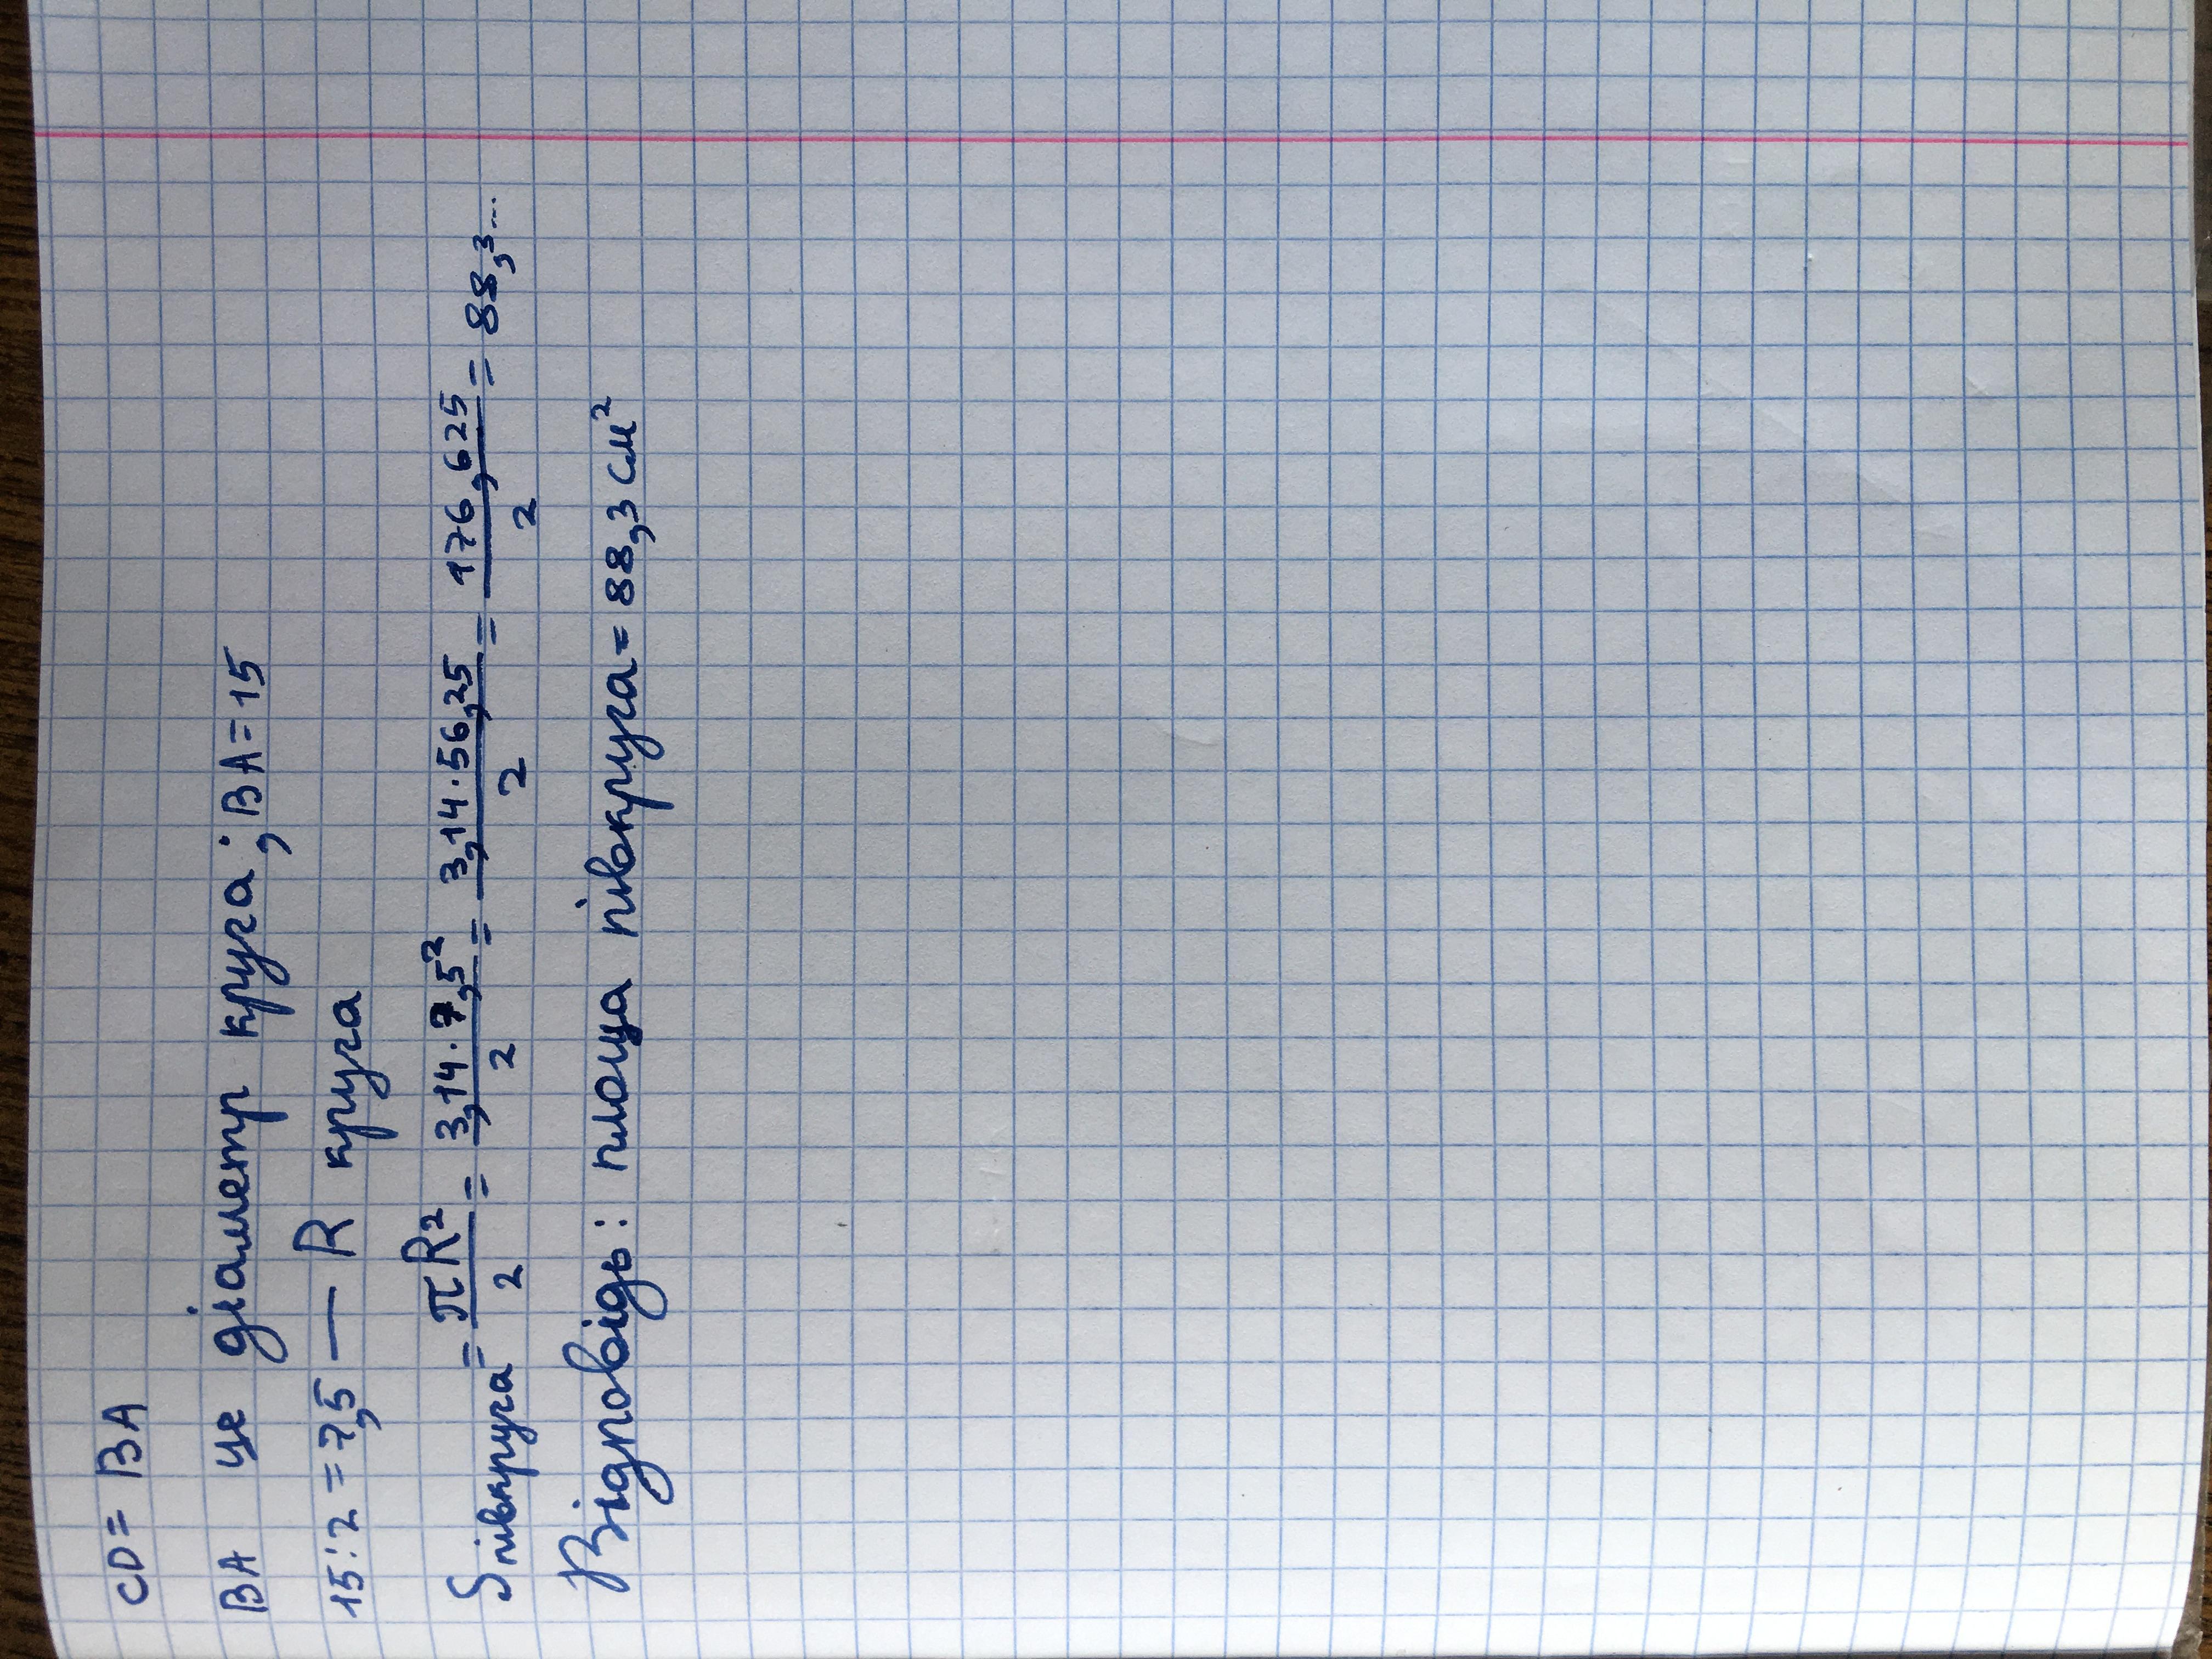 CD = BA
BA це діаметр круга; BA = 15
15:2 = 7,5 — R круга
Sпівкруга = πR²/2 = 3,14·7,5²/2 = 3,14·56,25/2 = 176,625/2 = 88,3...
Відповідь: площа півкруга = 88,3 см²